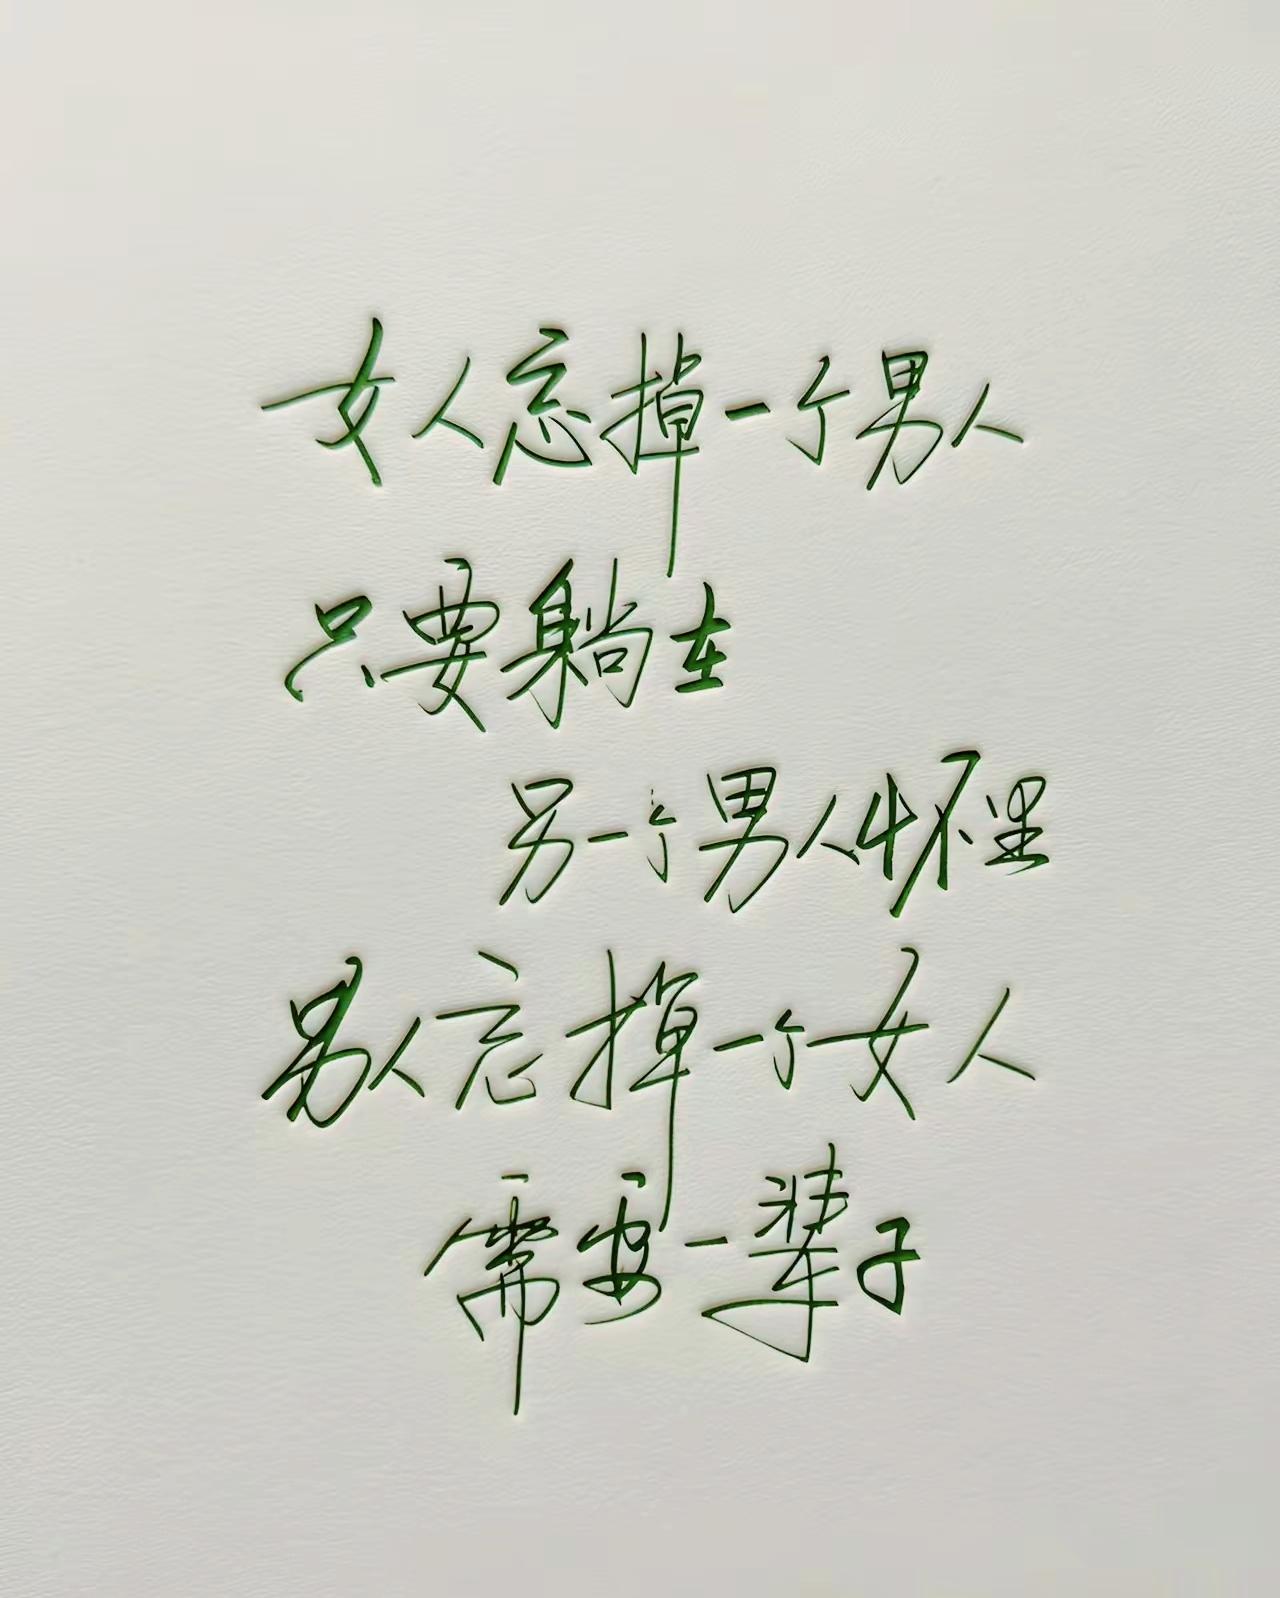 女人忘掉一个男人
只要躺在
另一个男人怀里
男人忘掉一个女人
需要一辈子